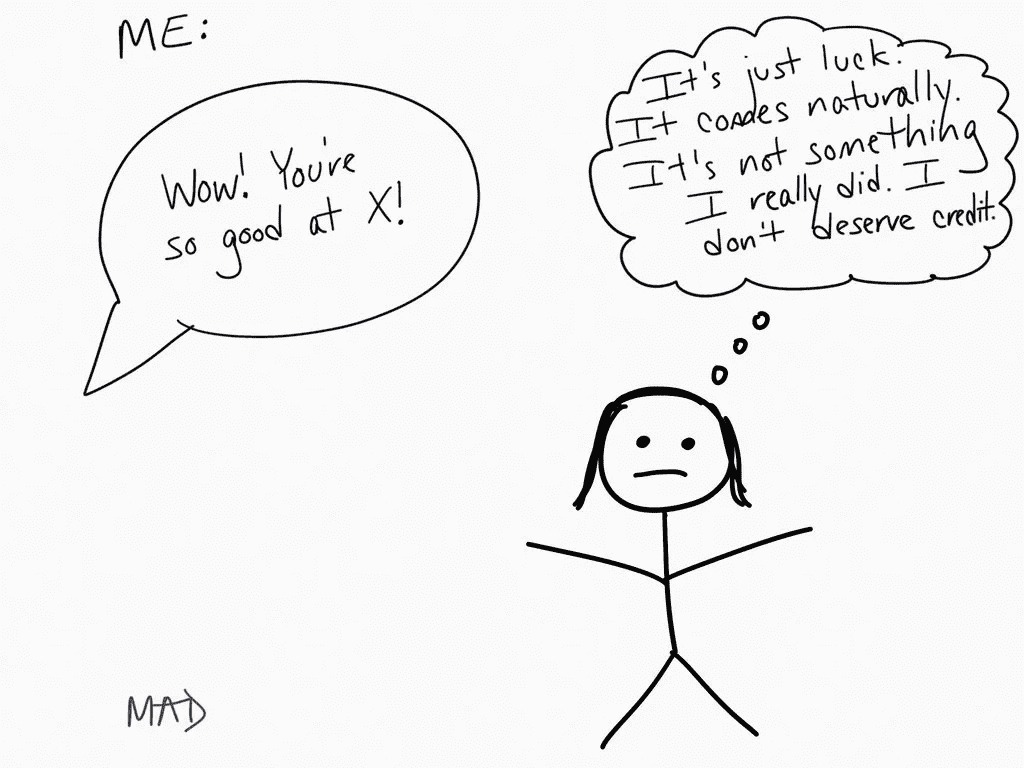 ME:
Wow! You're
so good at X!
It's just luck.
It comes naturally.
It's not something
I really did. I
don't deserve credit.
MAD